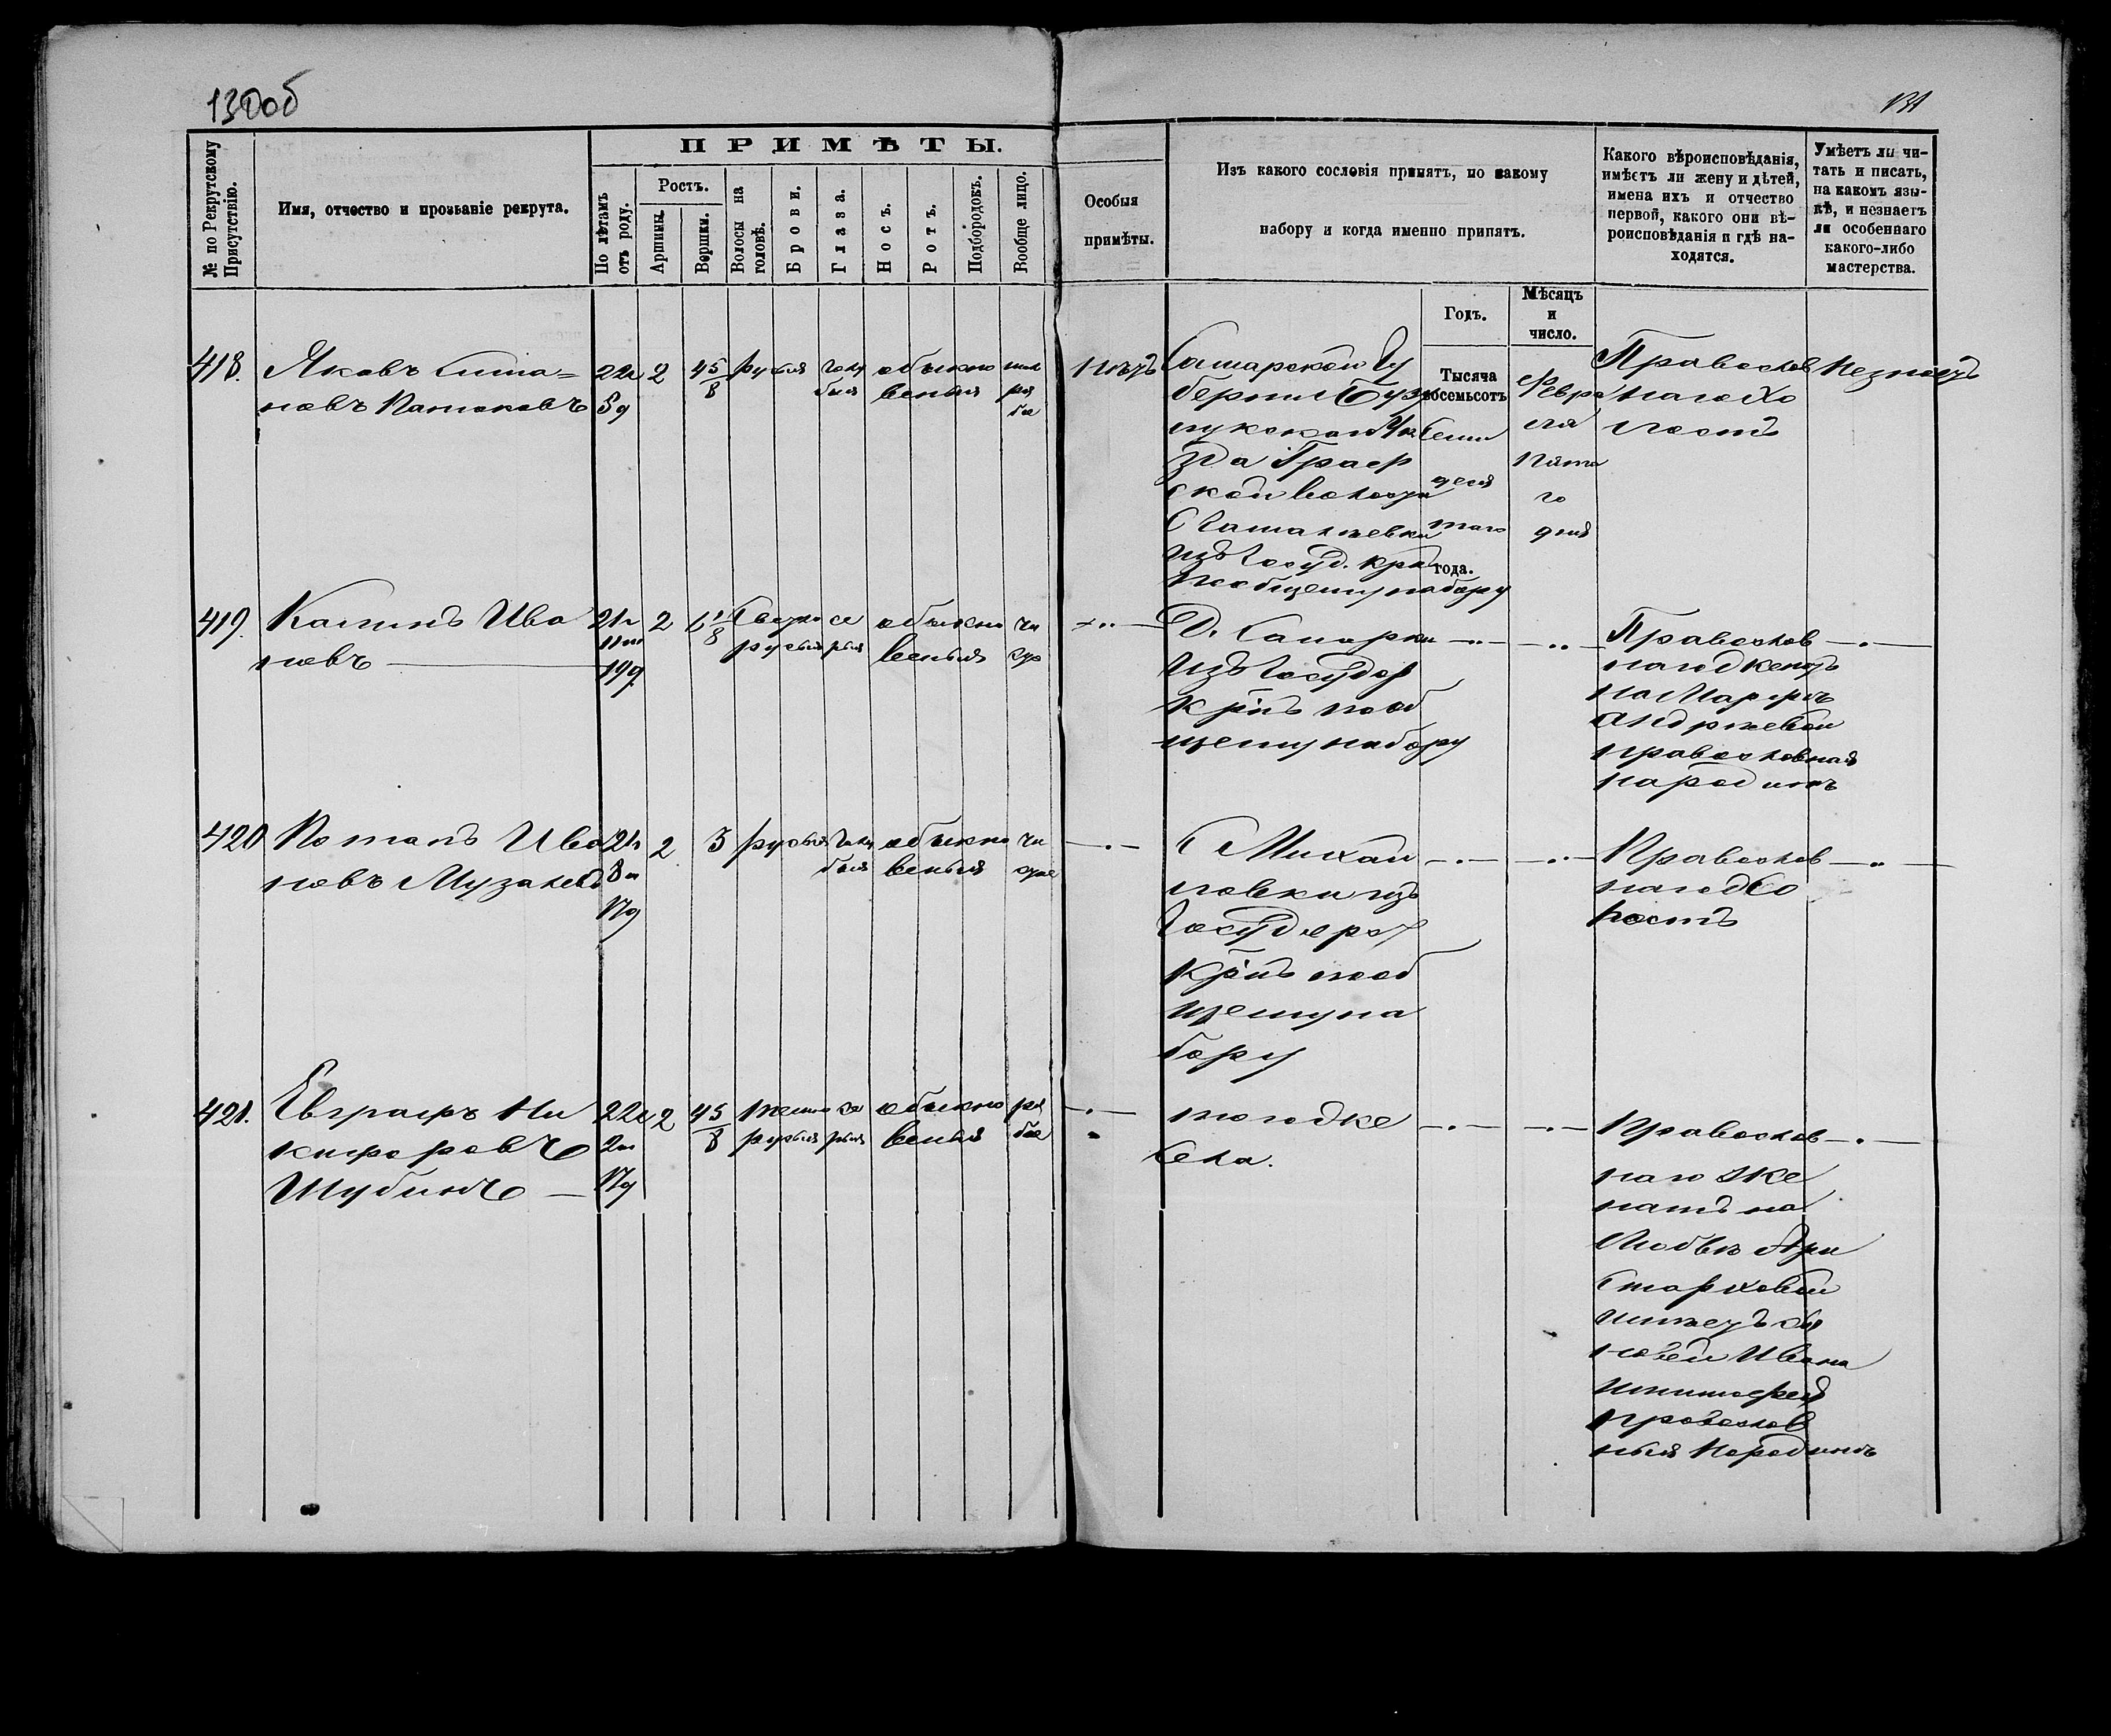 130об
131
ПРИМѢТЫ.
№ по Рекрутскому Присутствію.
Имя, отчество и прозваніе рекрута.
По лѣтамъ отъ роду.
Ростъ.
Аршины.
Вершки.
Волосы на головѣ.
Брови.
Глаза.
Носъ.
Ротъ.
Подбородокъ.
Вообще лицо.
Особыя
примѣты.
Изъ какого сословія принятъ, по какому
набору и когда именно принятъ.
Какого вѣроисповѣданія,
имѣетъ ли жену и дѣтей,
имена ихъ и отчество
первой, какого они вѣ-
роисповѣданія и гдѣ на-
ходятся.
Умѣетъ ли чи-
тать и писать,
на какомъ язы-
кѣ, и незнаетъ
ли особеннаго
какого-либо
мастерства.
Годъ.
Мѣсяцъ
и
число.
418.
Яковъ
новъ
22л
5д
2
4 5/8
русыя
голу
быя
обыкно
венныя
ря
бое
нѣтъ
Самарской Гу
берніи Бузу
лукской Уѣ
зда
ской волости
С
изъ Госуд. кр
по общему набору
Тысяча
восемьсотъ
Семи
деся
таго
года.
Февра
ля
пята
го
дня
Православ
наго Хо
лостъ
Незнаетъ
419.
Ива
новъ
21л
11м
19д
2
6 1/8
Светло
русыя
се
рыя
обыкно
венныя
чи
стое
Д.
изъ Государ
крнъ пооб
щему набору
Православ
наго женатъ
на Марфѣ
Андреевой
православная
народинѣ
420
Потапъ Ива
новъ
21л
8м
17д
2
3
русыя
голу
быя
обыкно
венныя
чи
стое
С Михай
ловки изъ
Государ
крнъ пооб
щему на
бору
Православ
наго Хо
лостъ
421.
Евграфъ Ни
кифоровъ
Шубинъ
22л
2м
17д
2
4 5/8
темно
русыя
се
рыя
обыкно
венныя
ря
бое
тогоже
села.
Православ
наго Же
натъ на
Любви Ари
старховой
имѣетъ сы
новей Ивана
и Тимофея
православ
ныя народинѣ